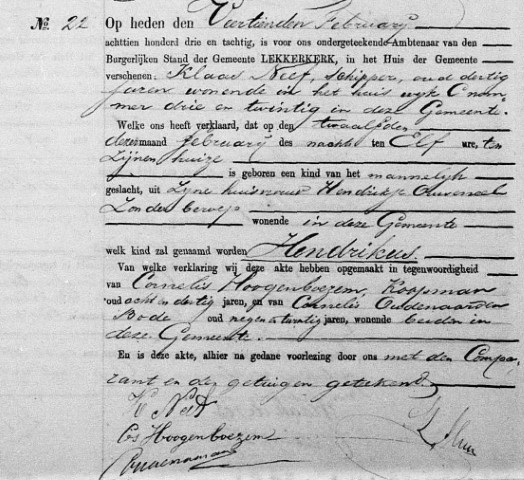 No. 22 Op heden den Veertienden February
achttien honderd drie en tachtig, is voor ons ondergeteekende Ambtenaar van den
Burgerlijken Stand der Gemeente LEKKERKERK, in het Huis der Gemeente
verschenen. Klaas Neef, Schipper, oud dertig
jaren wonende in het huis wijk C num
mer drie en twintig in deze Gemeente.
Welke ons heeft verklaard, dat op den twaalfden
dezer maand february des nachts ten Elf ure, ten
Zijnen huize
is geboren een kind van het mannelijk
geslacht, uit Zijne huisvrouw Hendrikje
Zonder beroep wonende in deze Gemeente
welk kind zal genaamd worden Hendrikus.
Van welke verklaring wij deze akte hebben opgemaakt in tegenwoordigheid
van Cornelis Hoogenboezem, Koopman
oud acht en dertig jaren, en van Cornelis Oudenaarden
Bode oud negen en twintig jaren, wonende beiden in
deze Gemeente.
En is deze akte, alhier na gedane voorlezing door ons met den Compa
rant en de getuigen getekend
K Neef
Cs Hoogenboezem